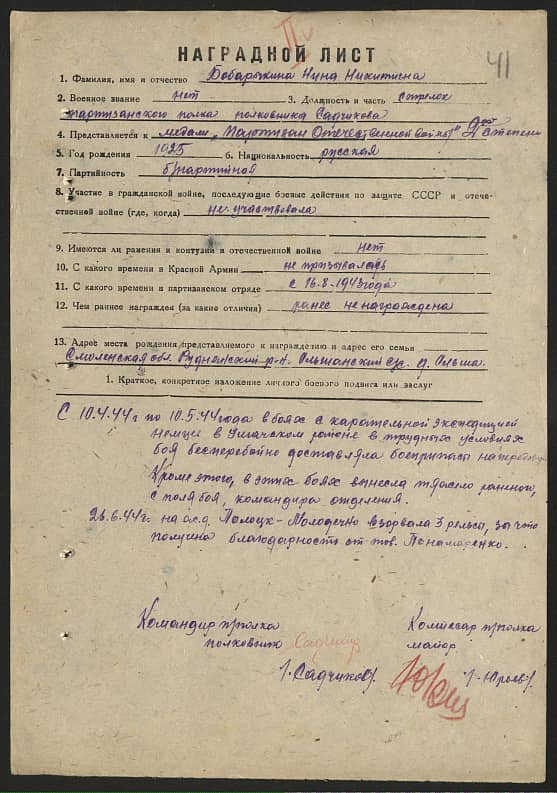 II
41
НАГРАДНОЙ ЛИСТ
1. Фамилия, имя и отчество Бобарыкина Нина Никитична
2. Военное звание нет 3. Должность и часть стрелок
партизанского полка полковника Садчикова
4. Представляется к медали "Партизан Отечественной войны" 2ой степени
5. Год рождения 1925 6. Национальность русская
7. Партийность б/партийная
8. Участие в гражданской войне, последующие боевые действия по защите СССР и отече-
ственной войне (где, когда) не участвовала
9. Имеются ли ранения и контузии в отечественной войне нет
10. С какого времени в Красной Армии не призывалась
11. С какого времени в партизанском отряде с 16.8-1943 года
12. Чем ранее награжден (за какие отличия) ранее не награждена
13. Адрес места рождения представляемого к награждению и адрес его семьи
Смоленская обл. Руднянский р-н. Ольшанский с/с. д. Ольша.
1. Краткое, конкретное изложение личного боевого подвига или заслуг
С 10.4.44г по 10.5.44 года в боях с карательной экспедицией
немцев в Ушачском районе в трудных условиях
боя бесперебойно доставляла боеприпасы на
Кроме этого, в этих боях вынесла тяжело раненого,
с поля боя, командира отделения.
26.6.44г. на ж.д. Полоцк-Молодечно взорвала 3 рельса, за что
получила благодарность от тов. Понамаренко.
Командир п/полка
полковник
/-Садчиков/.
Комиссар п/полка
майор
/-Юрьев/.